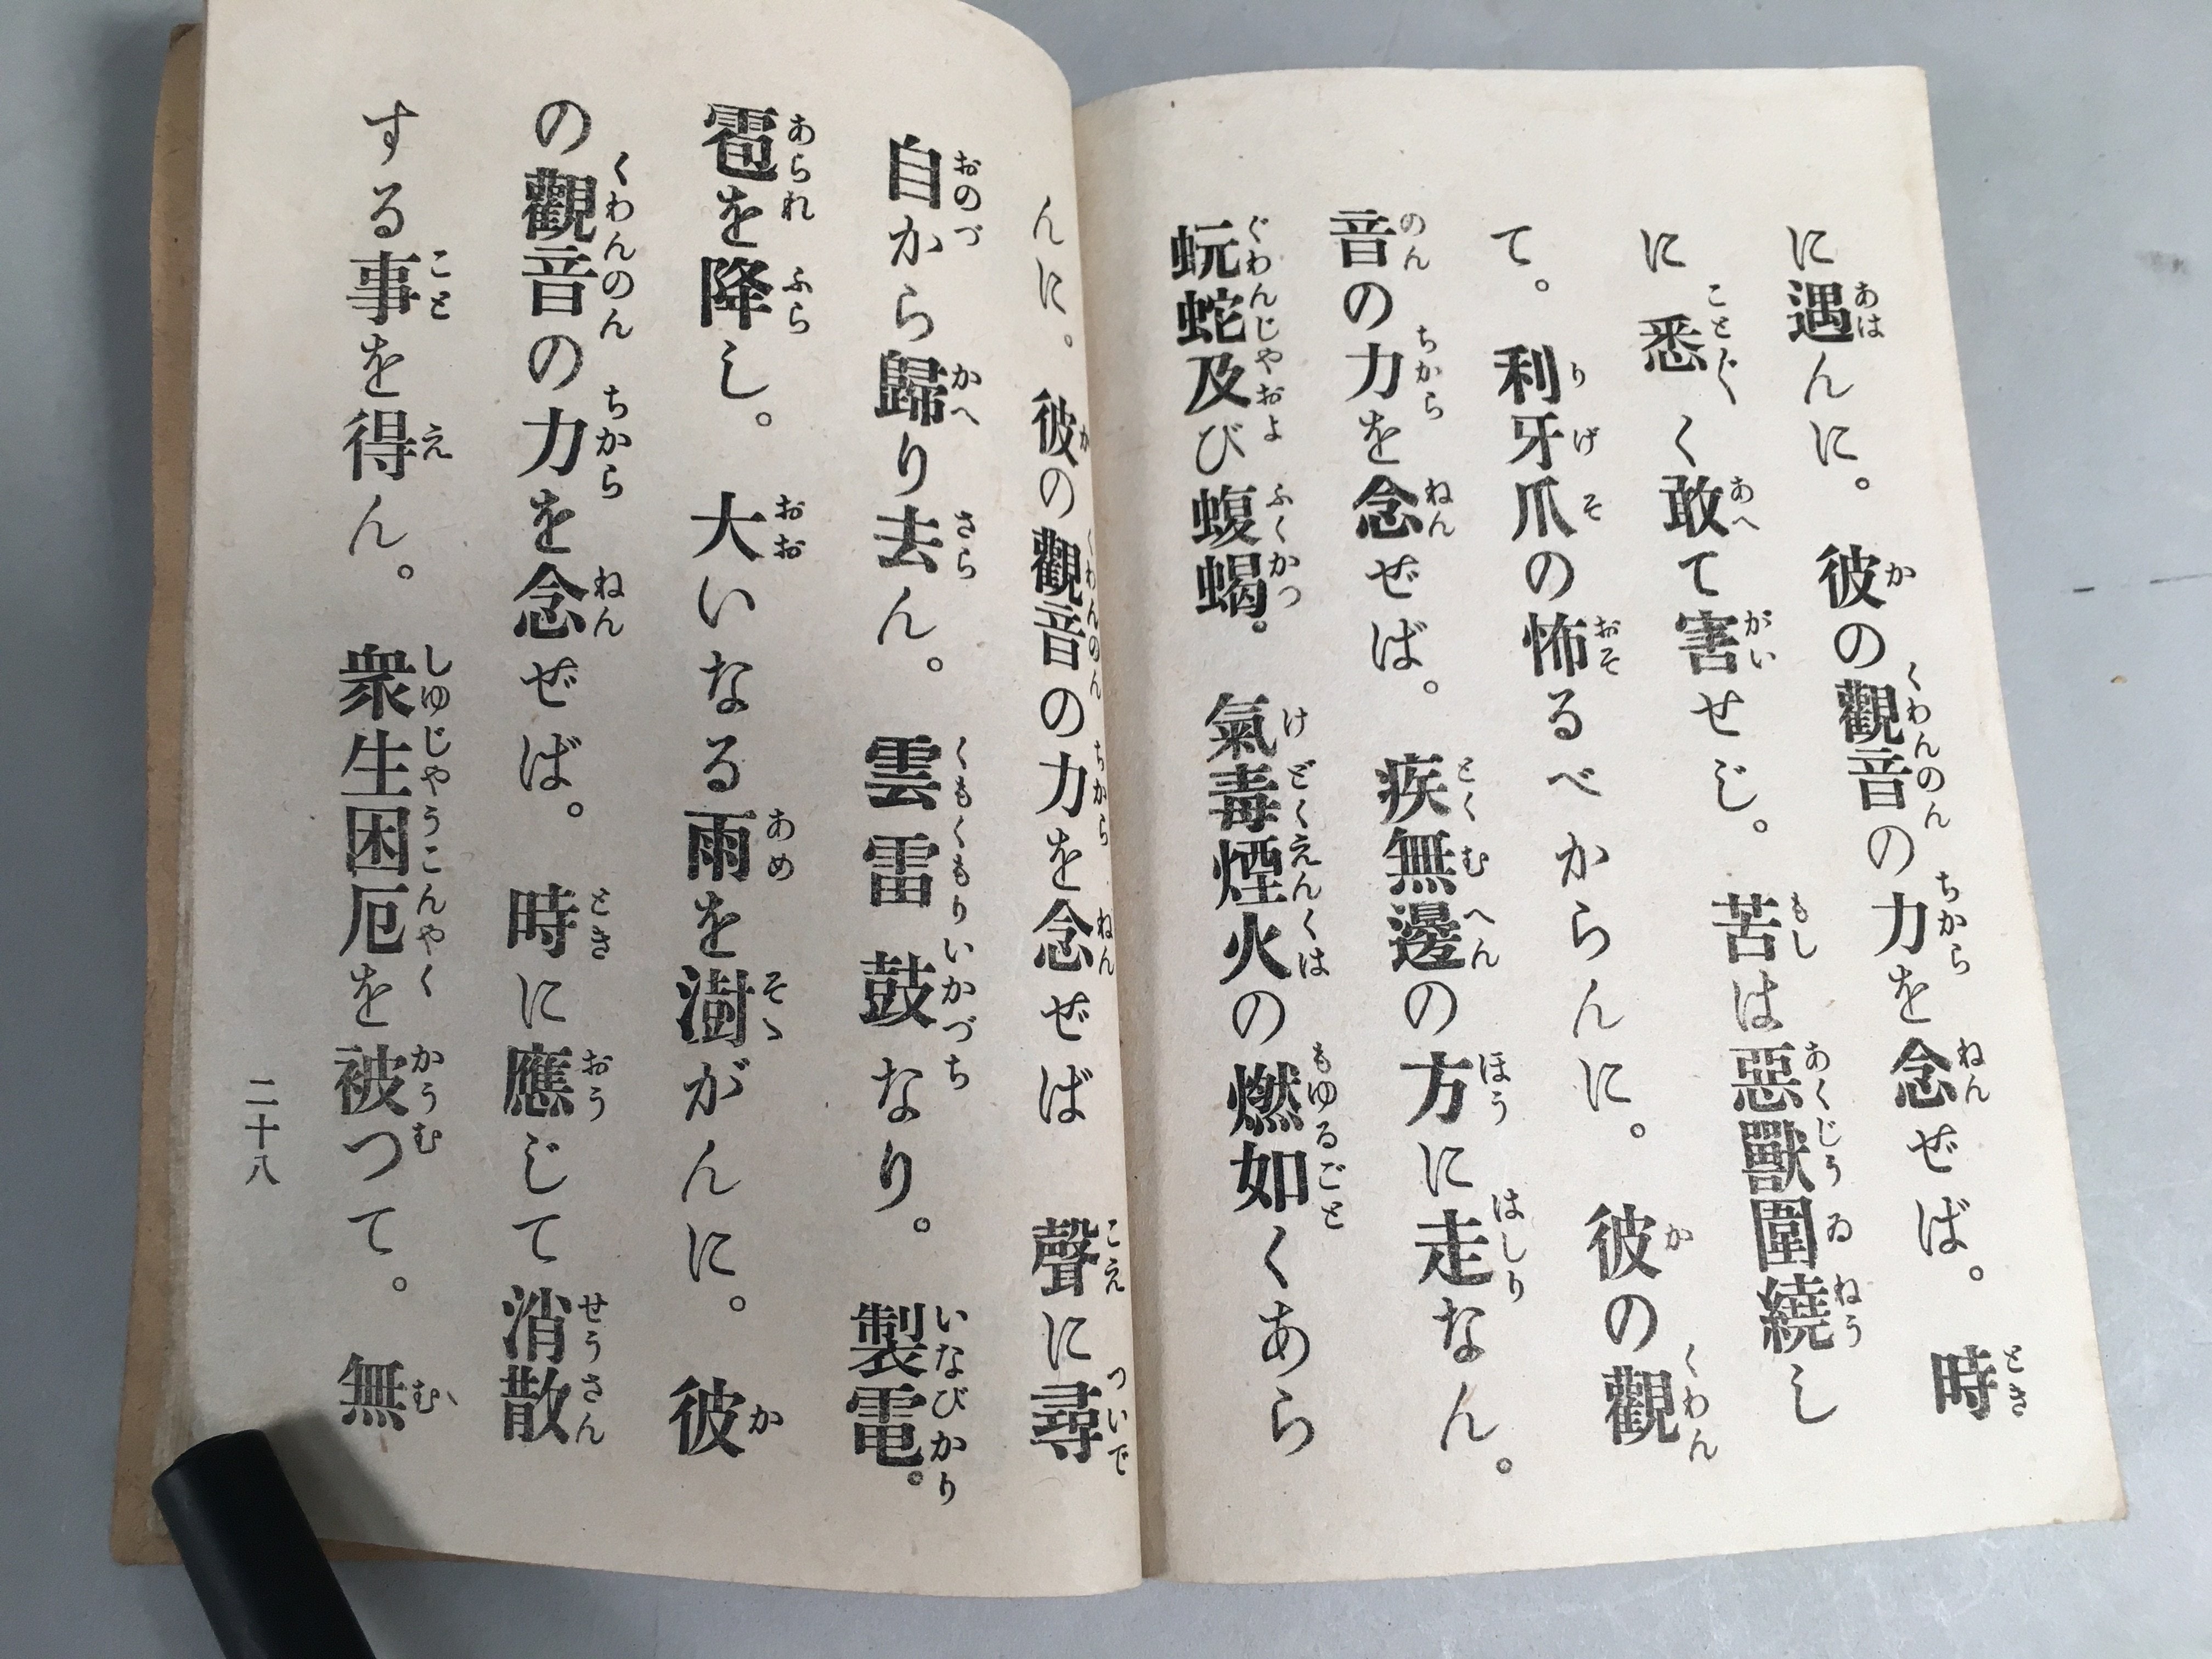 に遇んに。彼の觀音の力を念ぜば。時
に悉く敢て害せじ。苦は惡獸圍繞し
て。利牙爪の怖るべからんに。彼の觀
音の力を念ぜば。疾無邊の方に走なん。
蚖蛇及び蝮蝎。氣毒煙火の燃如くあら
んに。彼の觀音の力を念ぜば聲に尋
自から歸り去ん。雲雷鼓なり。製電。
雹を降し。大いなる雨を澍がんに。彼
の觀音の力を念ぜば。時に應じて消散
する事を得ん。衆生困厄を被つて。無
二十八